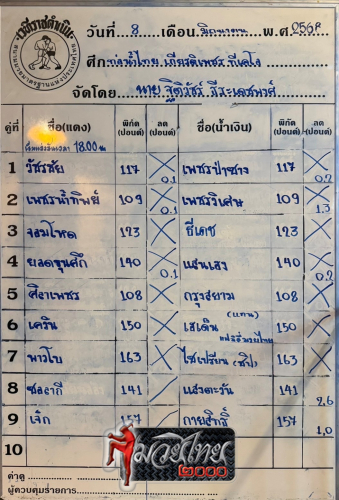 เวทีราชดำเนิน
วันที่ 8 เดือน มิถุนายน พ.ศ. 2568
ศึก ท่อน้ำไทย เกียรติเพชร ทีเคโอ
จัดโดย นาย ฐิติวัชร์ ธีระเดชพงศ์
คู่ที่ ชื่อ(แดง) พิกัด (ปอนด์) ลด (ปอนด์) ชื่อ(น้ำเงิน) พิกัด (ปอนด์) ลด (ปอนด์)
18.00 น
1 วัชรชัย 117 0.1 เพชรป่าซาง 117 0.2
2 เพชรน้ำทิพย์ 109 0.1 เพชรวิเศษ 109 1.3
3 จอมโหด 123 ซีเดช 123
4 ยอดขุนศึก 140 0.1 แสนเฮง 140 0.2
5 สิงเพชร 108 กรุงสยาม 108
6 เควิน 150 เฮเดิน (แทน) 150
7 พาวโบ 163 ไซเปรียน (ชิป) 163
8 141 แสงตะวัน 141 2.6
9 เจ๊ก 157 กายสิทธิ์ 157 1.0
10
ค่าดู
ผู้ควบคุมรายการ
มวยไทย
๒๐๐๐